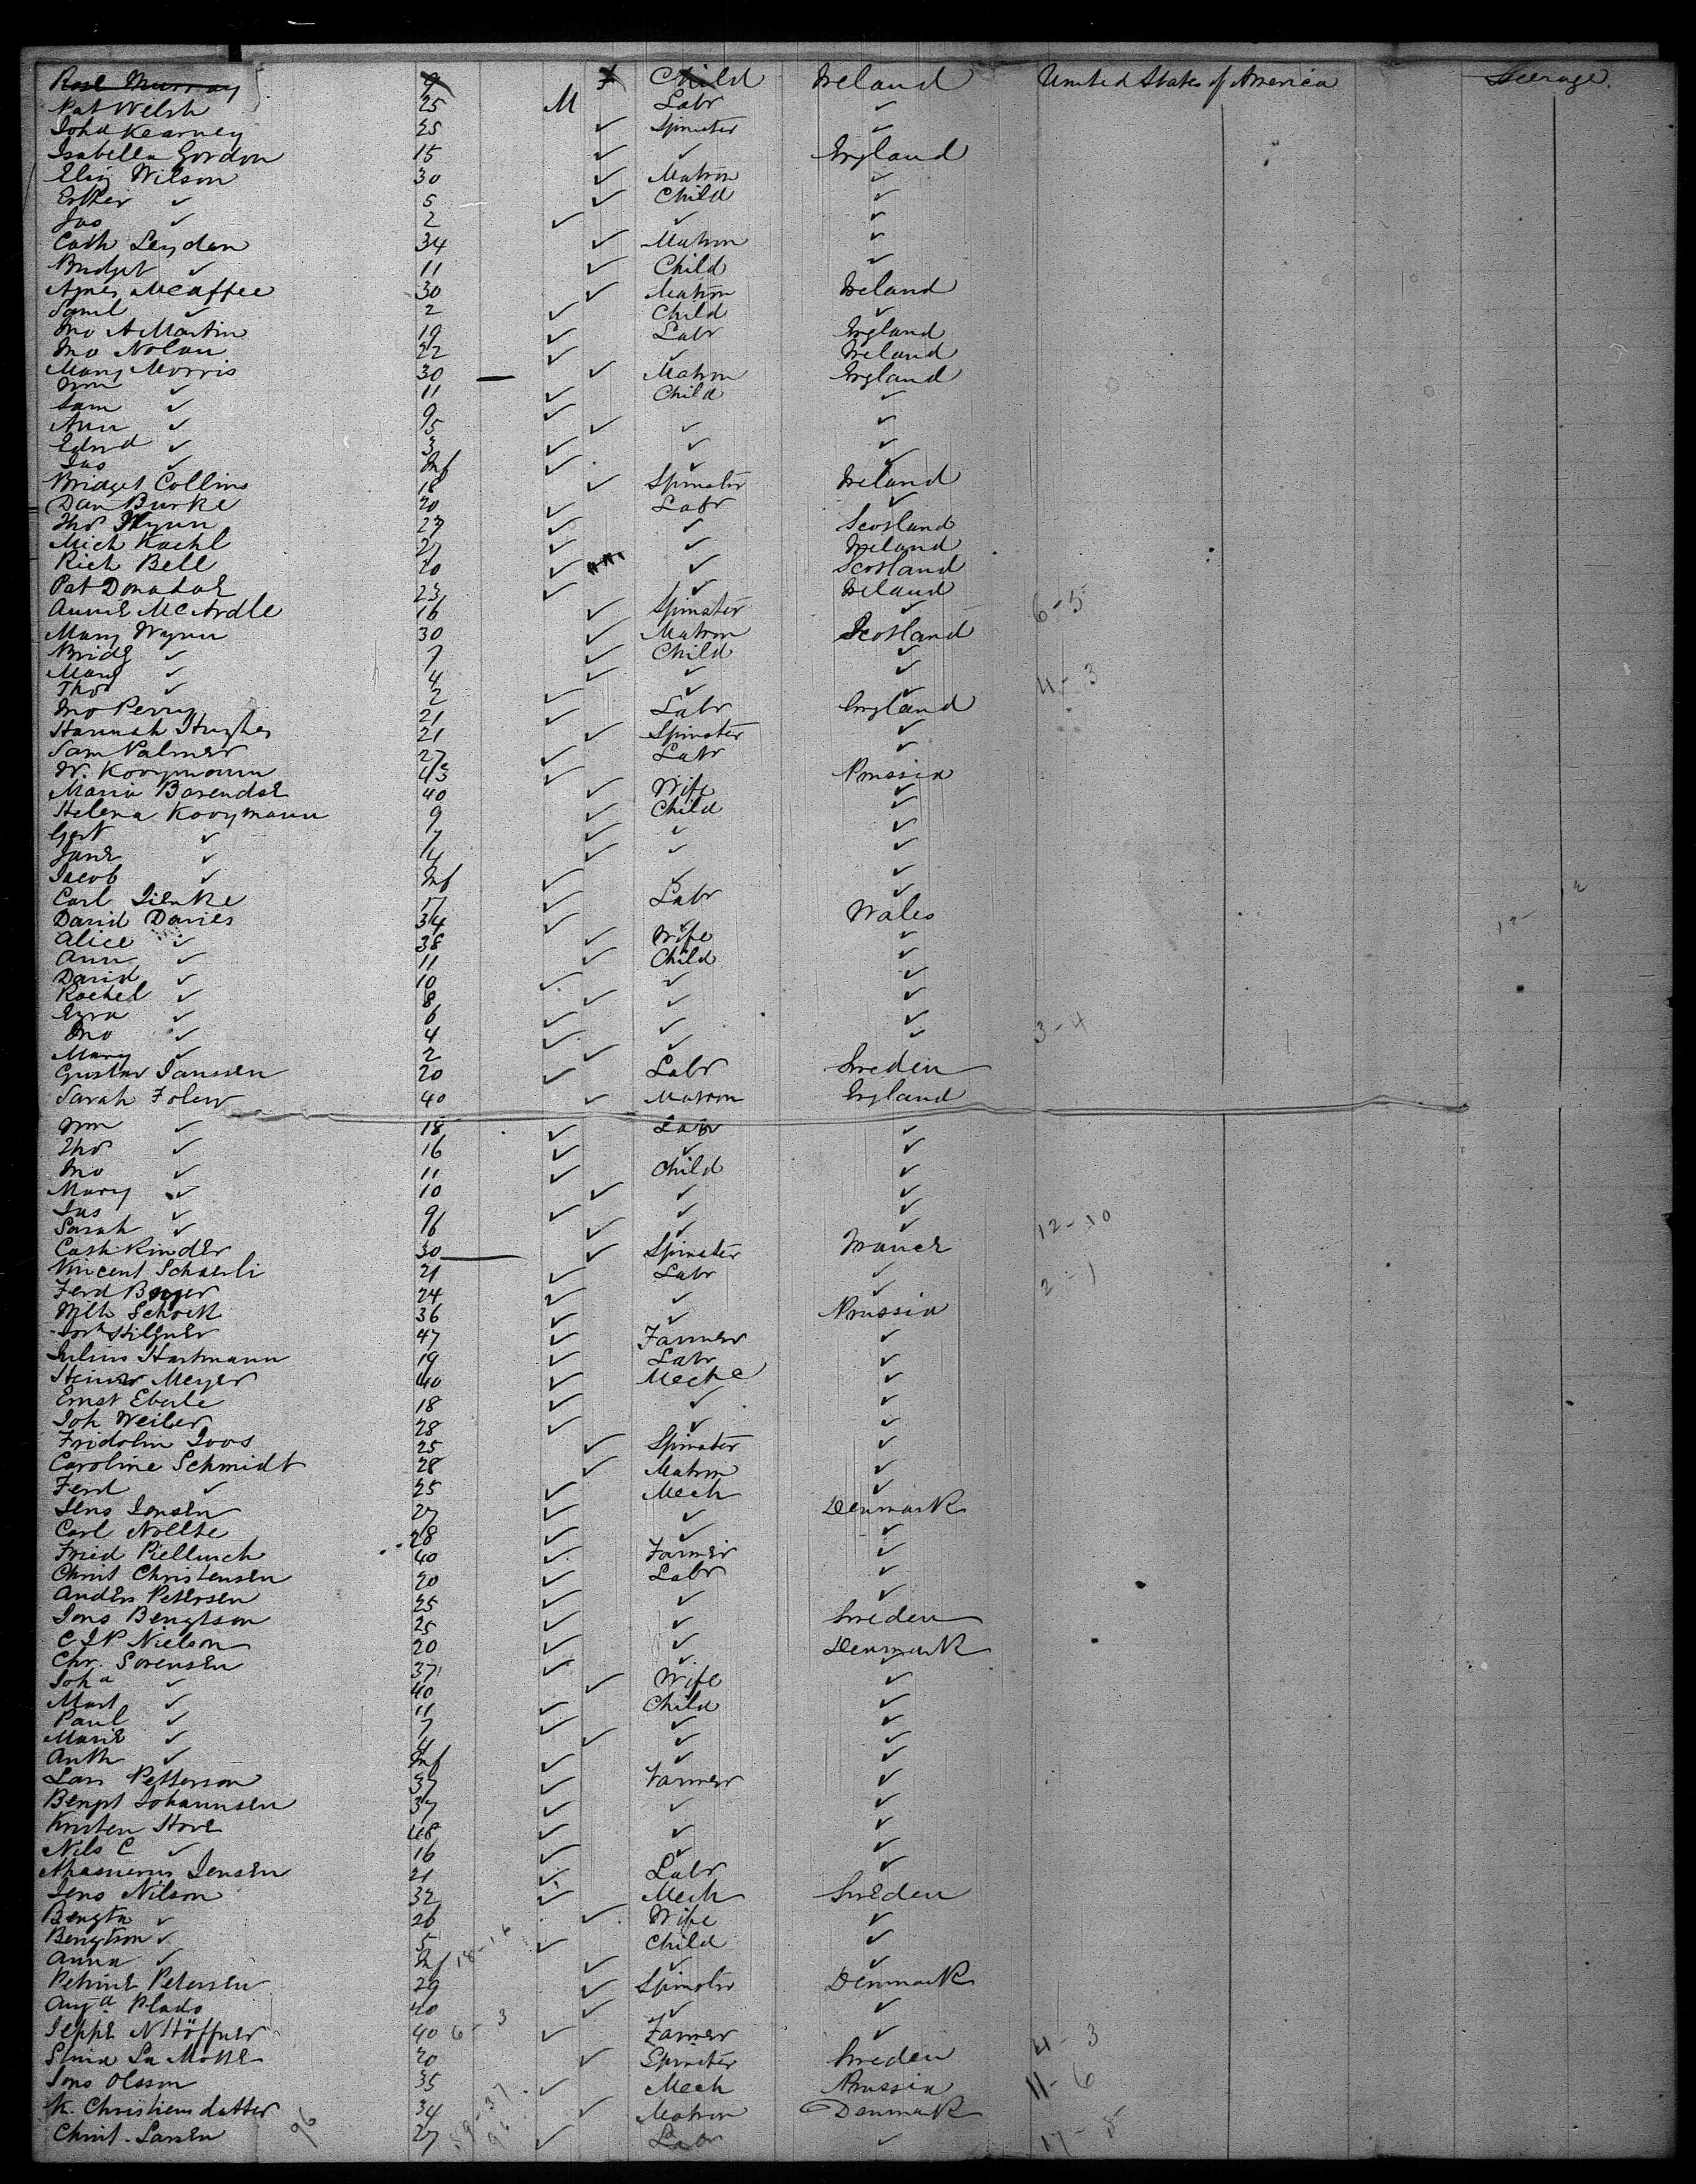 Rose Murray 9 F Child Ireland United States of America Steerage.
Pat Welsh 25 M Labr ✓
Joha Kearney 25 ✓ Spinster ✓
Isabella Gordon 15 ✓ ✓ England
Eliz Wilson 30 ✓ Matron ✓
Esther ✓ 5 ✓ Child ✓
Jas ✓ 2 ✓ ✓ ✓
Cath Leyden 34 ✓ Matron ✓
Bridget ✓ 11 ✓ Child ✓
Agnes McAffee 30 ✓ Matron Ireland
Saml ✓ 2 ✓ Child ✓
Jno A Martin 19 ✓ Labr England
Jno Nolan 22 ✓ ✓ Ireland
Mary Morris 30 — ✓ Matron England
Wm ✓ 11 ✓ Child ✓
Sam ✓ 9 ✓ ✓
Ann ✓ 5 ✓ ✓ ✓
Edwd ✓ 3 ✓ ✓ ✓
Jas ✓ Inf ✓ ✓ ✓
Bridget Collins 18 ✓ Spinster Ireland
Dan Burke 20 ✓ Labr ✓
Thos Wynn 27 ✓ ✓ Scotland
Mich Kachl 27 ✓ ✓ Ireland
Rich Bell 20 ✓ ✓ Scotland
Pat Donahoe 23 ✓ ✓ Ireland
Annie McArdle 16 ✓ Spinster ✓ 6-5
Mary Wynn 30 ✓ Matron Scotland
Bridg ✓ 7 ✓ Child ✓
Mary ✓ 4 ✓ ✓ ✓ 4-3
Thos ✓ 2 ✓ ✓ ✓
Jno Perry 21 ✓ Labr England
Hannah Hughes 21 ✓ Spinster ✓
Sam Palmer 27 ✓ Labr ✓
W. Kooymann 43 ✓ Prussia
Maria Barendse 40 ✓ Wife ✓
Helena Kooymann 9 ✓ Child ✓
Gert ✓ 7 ✓ ✓ ✓
Jane ✓ 4 ✓ ✓ ✓
Jacob ✓ Inf ✓ ✓ ✓
Carl Lienke 17 ✓ Labr ✓
David Davies 34 ✓ ✓ Wales
Alice ✓ 38 ✓ Wife ✓
Ann ✓ 11 ✓ Child ✓
David ✓ 10 ✓ ✓ ✓
Rachel ✓ 8 ✓ ✓ ✓
Ezra ✓ 6 ✓ ✓ ✓
Jno ✓ 4 ✓ ✓ ✓ 3-4
Mary ✓ 2 ✓
Gustav Janssen 20 ✓ Labr Sweden
Sarah Foley 40 ✓ Matron England
Wm ✓ 18 ✓ Labr ✓
Thos ✓ 16 ✓ ✓ ✓
Jno ✓ 11 ✓ Child ✓
Mary ✓ 10 ✓ ✓ ✓
Jas ✓ 9 ✓ ✓ ✓
Sarah ✓ 6 ✓ ✓ ✓ 12-10
Cath Kinder 30 — ✓ Spinster France
Vincent Schaerli 21 ✓ Labr ✓ 2-1
Ferd Boyer 24 ✓ ✓ ✓
Wilh Schock 36 ✓ ✓ Prussia
Joh Hilgner 47 ✓ Farmer ✓
Julius Hartmann 19 ✓ Labr ✓
Heinr Meyer 40 ✓ Mechc ✓
Ernst Eberle 18 ✓ ✓ ✓
Joh Weiler 28 ✓ ✓ ✓
Fridolin Joos 25 ✓ Spinster ✓
Caroline Schmidt 28 ✓ Matron ✓
Ferd ✓ 25 ✓ Mech ✓
Jens Jensen 27 ✓ ✓ Denmark
Carl Nollte 28 ✓ ✓ ✓
Fried 40 ✓ Farmer ✓
Christ Christensen 20 ✓ Labr ✓
Anders Petersen 25 ✓ ✓ ✓
Jons Bengtson 25 ✓ ✓ Sweden
C J P Nielson 20 ✓ ✓ Denmark
Chr. Sorensen 37 ✓ ✓ ✓
Joha ✓ 40 ✓ Wife ✓
Mart ✓ 11 ✓ Child ✓
Paul ✓ 7 ✓ ✓ ✓
Marie ✓ 4 ✓ ✓ ✓
Anth ✓ Inf ✓ ✓ ✓
Lars Petterson 37 ✓ Farmer ✓
Bengt Johannsen 37 ✓ ✓ ✓
Kristen Hove 48 ✓ ✓ ✓
Nils C ✓ 16 ✓ ✓ ✓
Jensen 21 ✓ Labr ✓
Jens Nilson 32 ✓ Mech Sweden
Bengta ✓ 26 ✓ Wife ✓
Bengtson ✓ 5 ✓ Child ✓
Anna ✓ Inf 18-16 ✓ ✓ ✓
Petrine Petersen 29 ✓ Spinster Denmark
Auga Plads 40 ✓ ✓ ✓
Jeppe N Höffner 40 6-3 ✓ Farmer ✓ 4-3
La Motte 20 ✓ Spinster Sweden
Jons Olsson 35 ✓ Mech Prussia 11-6
K. Christiensdatter 34 ✓ Matron Denmark
Christ. Larsen 96 27 59-37 96 ✓ Labr ✓ 17-8